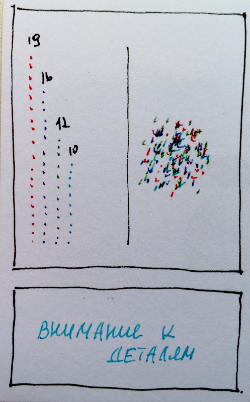 19
16
12
10
ВНИМАНИЕ К
ДЕТАЛЯМ